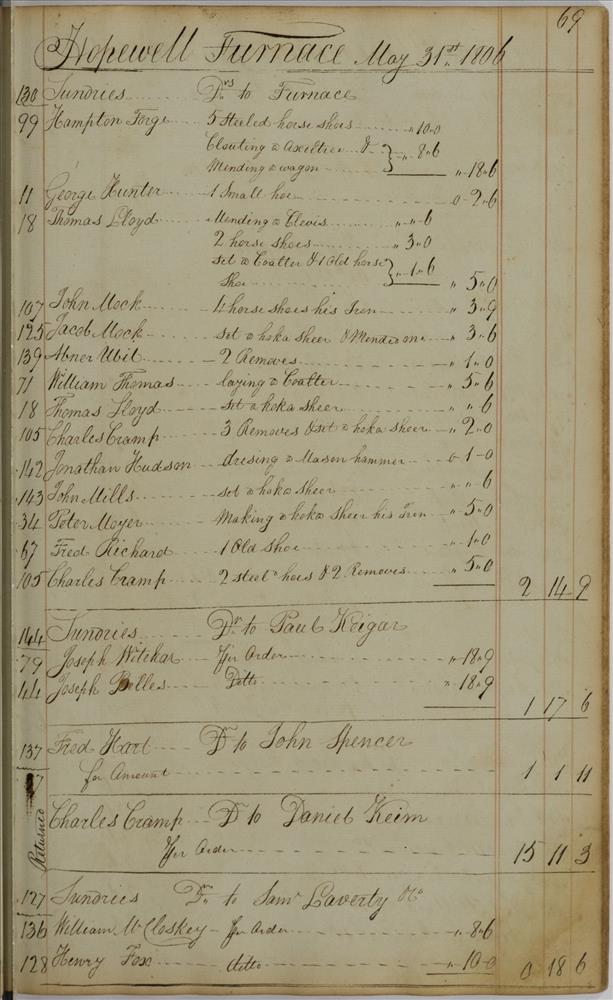 69
Hopewell Furnace May 31st 1806
130 Sundries Drs to Furnace
99 Hampton Forge 5 Steeled horse shoes " 10 " 0
Clouting a Axeltree &
Mending a wagon } " 8 " 6 " 18 " 6
11 George Hunter 1 Small hoe 0 " 2 " 6
18 Thomas Lloyd Mending a Clevis " " 6
2 horse shoes " 3 " 0
set a Coalter & 1 Old horse
Shoe } " 1 " 6 " 5 " 0
107 John Mock 4 horse shoes his Iron " 3 " 9
125 Jacob Mock set a hoka sheer & Mended one " 3 " 6
139 Abner Ubit 2 Removes " 1 " 0
71 William Thomas laying a Coalter " 5 " 6
18 Thomas Lloyd set a hoka sheer " " 6
105 Charles Cramp 3 Removes & set a hoka sheer " 2 " 0
142 Jonathan Hudson dresing a Mason hammer 0 " 1 " 0
143 John Mills set a hoka sheer " " 6
34 Peter Moyer Making a hoka sheer his Iron " 5 " 0
67 Fred Richard 1 Old Shoe " 1 " 0
105 Charles Cramp 2 steel'd shoes & 2 Removes " 5 " 0 2 14 9
144 Sundries Drs to Paul Keigar
79 Joseph Witchar Per Order " 18 " 9
44 Joseph Belles Ditto " 18 " 9
1 17 6
137 Fred Hart Dr to John Spencer
7 for Amount 1 1 11
Returned
Charles Cramp Dr to Daniel Keim
Per Order 15 11 3
127 Sundries Drs to Saml Laverty &c
136 William McCloskey for Order " 8 " 6
128 Henry Fox ditto " 10 " 0 0 18 6